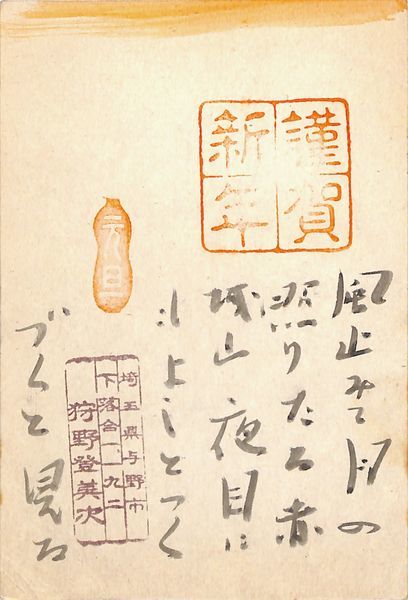 謹賀
新年
風止みて月の
照りたる赤
城山夜目に
もよしとつく
づくと見る
元旦
埼玉県与野市
下落合一一九二
狩野登英次